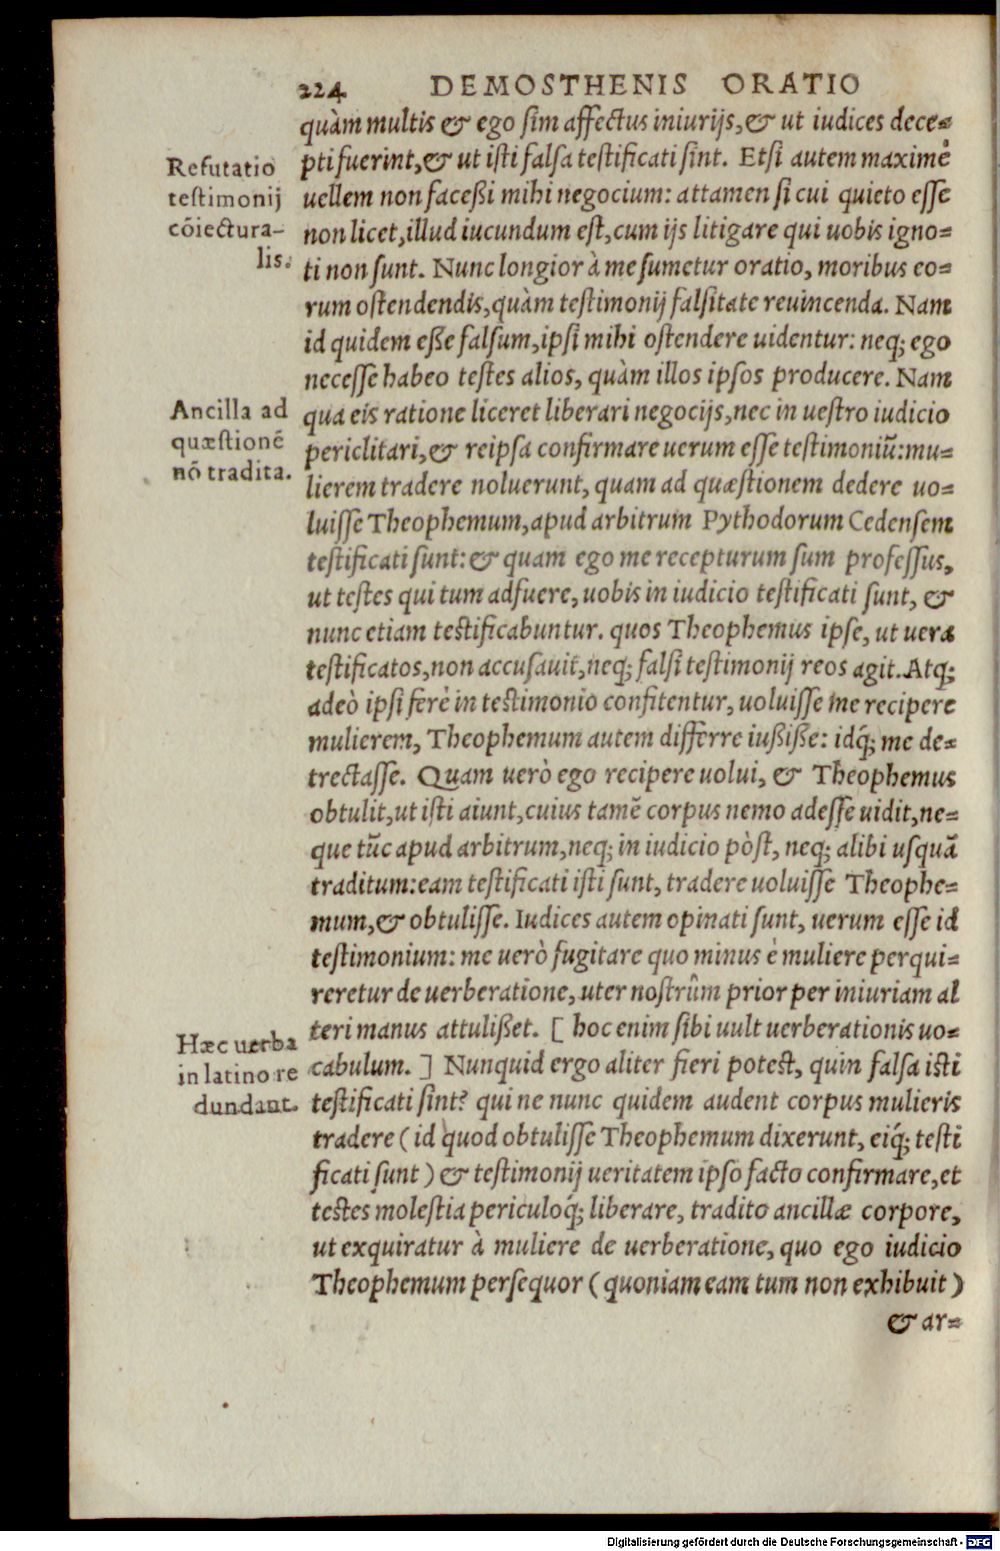 224 DEMOSTHENIS ORATIO
quàm multis & ego sim affectus iniurijs, & ut iudices dece=
pti fuerint, & ut isti falsa testificati sint. Etsi autem maximè
uellem non facessi mihi negocium: attamen si cui quieto esse
non licet, illud iucundum est, cum ijs litigare qui uobis igno=
ti non sunt. Nunc longior à me sumetur oratio, moribus eo=
rum ostendendis, quàm testimonij falsitate reuincenda. Nam
id quidem esse falsum, ipsi mihi ostendere uidentur: neq; ego
necesse habeo testes alios, quàm illos ipsos producere. Nam
qua eis ratione liceret liberari negocijs, nec in uestro iudicio
periclitari, & reipsa confirmare uerum esse testimoniũ: mu=
lierem tradere noluerunt, quam ad quæstionem dedere uo=
luisse Theophemum, apud arbitrum Pythodorum Cedensem
testificati sunt: & quam ego me recepturum sum professus,
ut testes qui tum adfuere, uobis in iudicio testificati sunt, &
nunc etiam testificabuntur. quos Theophemus ipse, ut uera
testificatos, non accusauit, neq; falsi testimonij reos agit. Atq;
adeò ipsi ferè in testimonio confitentur, uoluisse me recipere
mulierem, Theophemum autem differre iussisse: idq́; me de=
trectasse. Quam uerò ego recipere uolui, & Theophemus
obtulit, ut isti aiunt, cuius tamẽ corpus nemo adesse uidit, ne=
que tũc apud arbitrum, neq; in iudicio pòst, neq; alibi usquã
traditum: eam testificati isti sunt, tradere uoluisse Theophe=
mum, & obtulisse. Iudices autem opinati sunt, uerum esse id
testimonium: me uerò fugitare quo minus è muliere perqui=
reretur de uerberatione, uter nostrûm prior per iniuriam al
teri manus attulisset. [ hoc enim sibi uult uerberationis uo=
cabulum. ] Nunquid ergo aliter fieri potest, quin falsa isti
testificati sint? qui ne nunc quidem audent corpus mulieris
tradere ( id quod obtulisse Theophemum dixerunt, eiq́; testi
ficati sunt ) & testimonij ueritatem ipso facto confirmare, et
testes molestia periculoq́; liberare, tradito ancillæ corpore,
ut exquiratur à muliere de uerberatione, quo ego iudicio
Theophemum persequor ( quoniam eam tum non exhibuit )
& ar=
Refutatio
testimonij
cõiectura-
lis.
Ancilla ad
quæstionẽ
nõ tradita.
Hæc uerba
in latino re
dundant.
Digitalisierung gefördert durch die Deutsche Forschungsgemeinschaft - DFG